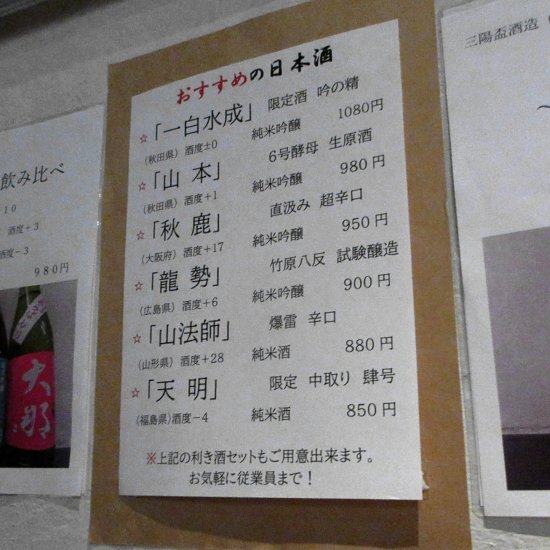 飲み比べ
10
酒度+3
酒度-3
980円
大那
おすすめの日本酒
☆「一白水成」 限定酒 吟の精
(秋田県) 酒度±0 純米吟醸 1080円
☆「山本」 6号酵母 生原酒
(秋田県) 酒度+1 純米吟醸 980円
☆「秋鹿」 直汲み 超辛口
(大阪府) 酒度+17 純米吟醸 950円
☆「龍勢」 竹原八反 試験醸造
(広島県) 酒度+6 純米吟醸 900円
☆「山法師」 爆雷 辛口
(山形県) 酒度+28 純米酒 880円
☆「天明」 限定 中取り 肆号
(福島県)酒度-4 純米酒 850円
※上記の利き酒セットもご用意出来ます。
お気軽に従業員まで!
三陽盃酒造